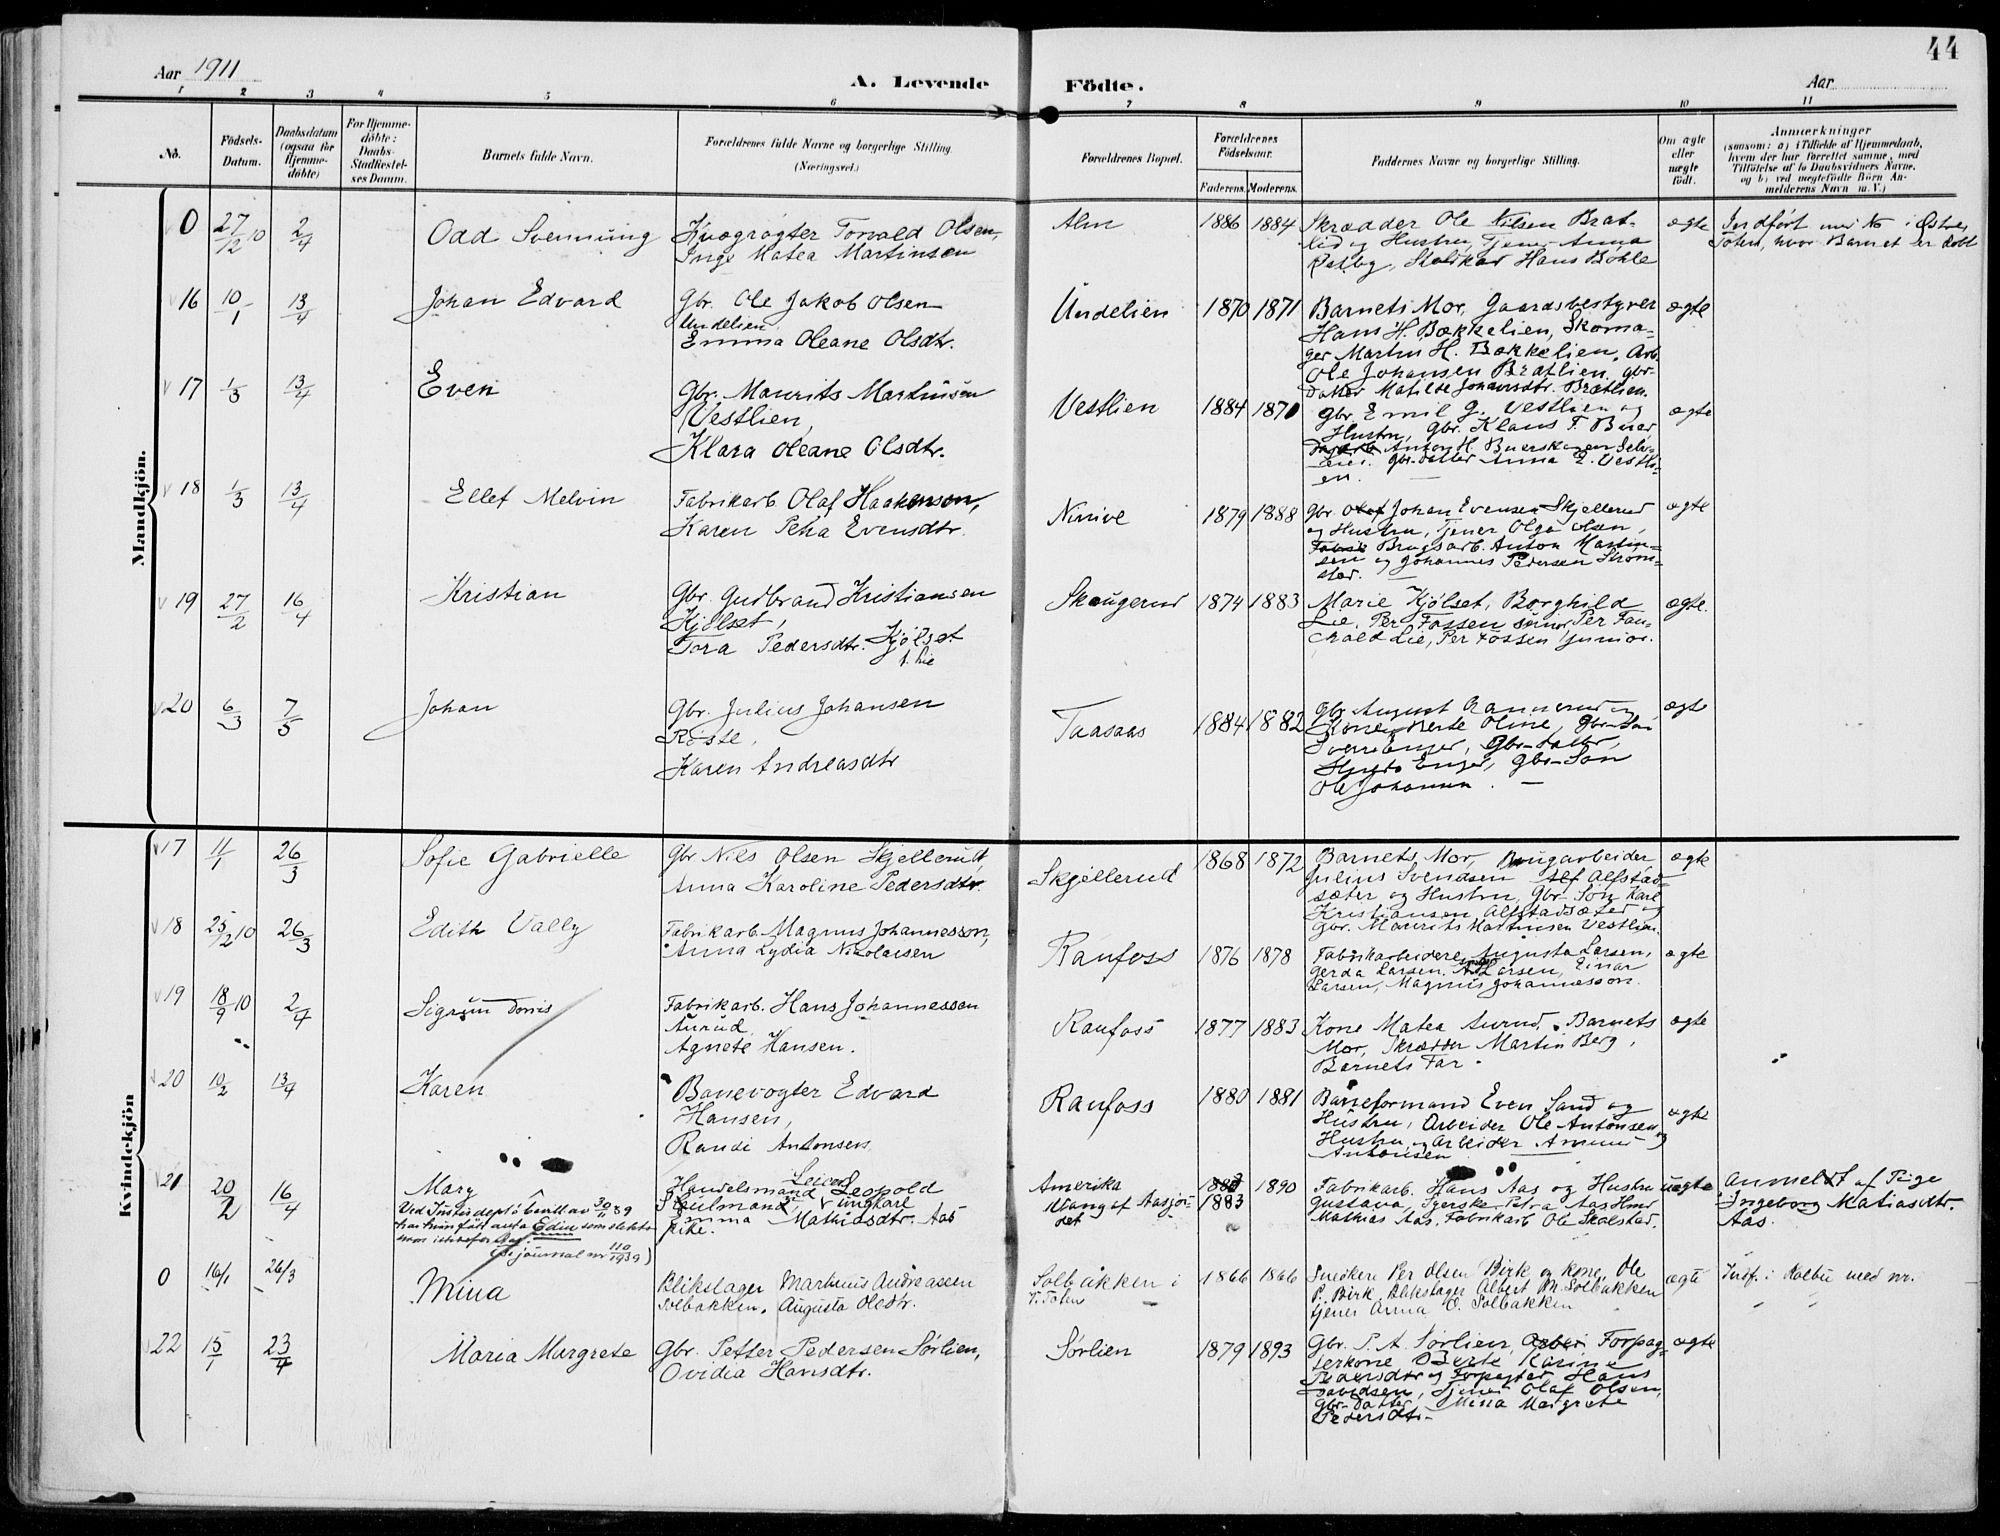 44
Aar 1911
A. Levende
Födte.
Aar
1 2 3 4 5 6 7 8 9 10 11
No.
Födsels-
Datum.
Daabsdatum
(ogsaa for
Hjemme-
döbte)
For Hjemme-
döbte:
Daabs-
Stadfæstel-
ses Datum.
Barnets fulde Navn.
Forældrenes fulde Navne og borgerlige Stilling
(Næringsvei.)
Forældrenes Bopæl.
Forældrenes
Födselsaar.
Faderens. Moderens.
Faddernes Navne og borgerlige Stilling.
Om ægte
eller
uægte
födt.
Anmærkninger
(saasom: a) i Tilfælde af Hjemmedaab,
hvem der har forrettet samme, med
Tilföielse af to Daabsvidners Navne.
og b) ved uægtefödte Börn An-
melderens Navn m. V.)
Mandkjön.
0 27/12 10 2/4 Odd Svennung
Kvægrøgter Torvald Olsen,
Inga Matea Martinsen
Alm 1886 1884
Skrædder Ole Nilsen Brat-
lid og Hustru, Tjener Anna
Røtby, Staldkar Hans Bøhle
ægte
Indført med No i Østre
Toten, hvor Barnet er døbt
16 10/1 13/4 Johan Edvard
Gbr. Ole Jakob Olsen
Undelien
Emma Oleane Olsdtr.
Undelien 1870 1871
Barnets Mor, Gaardsbestyrer
Hans H. Bækkelien, Skoma-
ger Martin H. Bækkelien, Arb.
Ole Johansen Brætlien, gbr-
datter Matilde Johansdtr. Brætlien.
ægte
17 1/3 13/4 Even
Gbr. Maurits Martinsen
Vestlien,
Klara Oleane Olsdtr.
Vestlien 1884 1870
Gbr Emil G. Vestlien og
Hustru, Gbr. Klaus F. Buer
Anton H. Buerskogen
gbr-datter Anna E. Vestli-
en.
ægte
18 1/3 13/4 Ellef Melvin
Fabrikarb. Olaf Haakenson,
Karen Petra Evensdtr.
Ninive 1879 1888
Gbr. Olaf Johan Evensen Skjellerud
og Hustru, Tjener Olga Olsen,
Fabrik Brugsarb. Anton Martin-
sen og Johannes Pedersen Strøm-
stad.
ægte
19 27/2 16/4 Kristian
Gbr. Gudbrand Kristiansen
Kjölset,
Tora Pedersdtr. Kjölset
f. Lie
Skaugerud 1874 1883
Marie Kjölset, Borghild
Lie, Per Fossen senior, Per Fau-
chald Lie, Per Fossen junior.
ægte.
20 6/3 7/5 Johan
Gbr. Julius Johansen
Røste,
Karen Andreasdtr
Taasaas 1884 1882
Gbr August Rannerud og
Kone Berte Oline, Gbr-søn
Sverre Enger, Gbr-datter,
Enger, Gbr-Søn
Ole Johansen.
ægte
Kvindekjön
17 11/1 26/3 Sofie Gabrielle
Gbr Nils Olsen Skjellerud,
Anna Karoline Pedersdtr.
Skjellerud 1868 1872
Barnets Mor, Brugarbeider
Julius Svendsen Alf Alfstad-
sæter og Hustru, Gbr-Søn Karl
Kristiansen Alfstadsæter og
Gbr. Maurits Martinsen Vestlien.
ægte
18 25/12 10 26/3 Edith Vally
Fabrikarb. Magnus Johannesson,
Anna Lydia Nikolaisen
Raufoss 1876 1878
Fabrikarbeidere Augusta Larsen,
Gerda Larsen, A. Larsen, Einar
Larsen, Magnus Johannesson.
ægte
19 18/9 10 2/4 Sigrun Dorris
Fabrikarb. Hans Johannessen
Aurud,
Agnete Hansen.
Raufoss 1877 1883
Kone Matea Aurud, Barnets
Mor, Skrædder Martin Berg,
Barnets Far.
ægte
20 10/2 13/4 Karen
Banevogter Edvard
Hansen,
Randi Antonsen
Raufoss 1880 1881
Baneformand Even Sand og
Hustru, Arbeider Ole Antonsen og
Hustru, Arbeider Amund
Antonsen
ægte
21 20/2 16/4 Mary
Ved Justisdept.s bevill. av 30/11 39
har hun fått anta Edin som slekts-
navn istedenfor Aas.
(Se journal nr 110/1939)
Handelsmand Leopold
Paulmand, Ungkarl
Emma Mathiasdtr. Aas
Pike.
Amerika
Utang af Aasjor-
det
1883 1890
Fabrikarb. Hans Aas og Hustru
Gustava, Syerske Petra Aas, Hmd
Mathias Aas, Fabrikarb Ole Skolstad.
uægte
Anmeldt af Pige
Ingeborg Matiasdtr.
Aas.
0 16/1 26/3 Mina
Blikslager Martinius Andreassen
Solbakken, Augusta Olesdtr.
Solbakken i
V. Toten
1866 1866
Snekker Per Olsen Birk og kone, Ole
P. Birk, Blikslager Albert M. Solbakken
tjener Anna O. Solbakken
ægte
Indf. i Kolbu med nr.
22 15/1 23/4 Maria Margrete
Gbr. Petter Pedersen Sørlien,
Ovidia Hansdtr.
Sørlien 1879 1893
Gbr. P. A. Sørlien, Forpag-
terkone Berte Karine
Pedersdtr og Forpagter Hans
Davidsen, Tjener Olaf Olsen,
Gbr-Datter Mina Margrete
Pedersdtr.
ægte